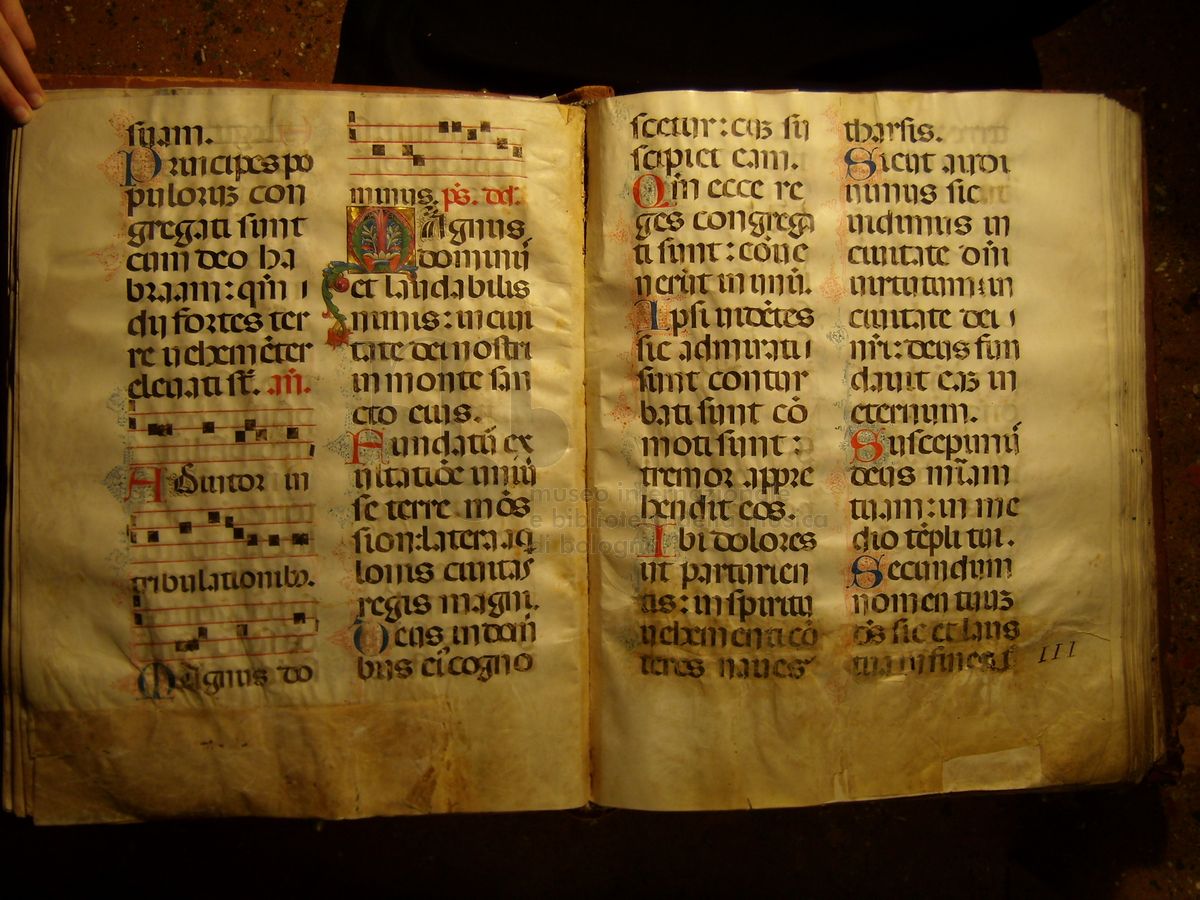 suam.
Principes po
puloruꝫ con
gregati sunt
cum deo ha
braam: qm̄ i
dij fortes ter
re uehemēter
eleuati sūt. an̄.
Adiutor in
tribulationibꝰ.
Magnus do
minus. pš. dd̄.
Magnus
dominꝰ
et laudabilis
nimis: in ciui
tate dei nostri
in monte san
cto eius.
Fundatꝰ ex
ultatiōe uniū
se terre mōs
sion: latera aq
lonis ciuitas
regis magni.
Deus in domī
bus eiꝰ cogno
scetur: cuꝫ su
scipiet eam.
Qm̄ ecce re
ges congrega
ti sunt: cōue
nerūt in unū.
Ipsi uidētes
sic admirati
sunt contur
bati sunt cō
moti sunt:
tremor appre
hendit eos.
Ibi dolores
ut parturien
tis: in spiritu
uehementi cō
teres naues
tharsis.
Sicut audi
uimus sic
uidimus in
ciuitate dn̄i
uirtutum: in
ciuitate dei
nr̄i: deus fun
dauit eaꝫ in
eternum.
Suscepimꝰ
deus miam
tuam: in me
dio tēpli tui.
Secundum
nomen tuuꝫ
ds̄ sic et laus
tua in fines t
III
museo internazionale
e biblioteca della musica
di bologna